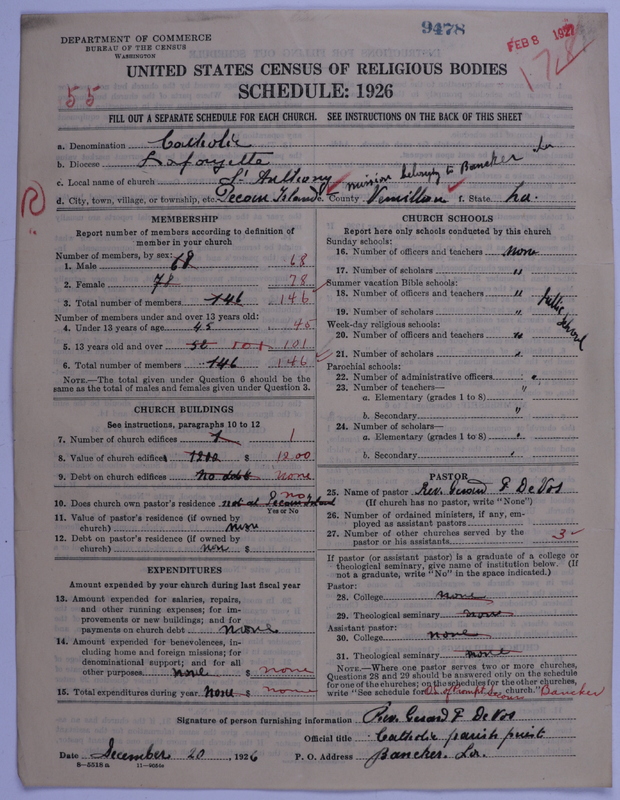 9478
FEB 8 1927
DEPARTMENT OF COMMERCE
BUREAU OF THE CENSUS
WASHINGTON
UNITED STATES CENSUS OF RELIGIOUS BODIES
SCHEDULE: 1926
55
FILL OUT A SEPARATE SCHEDULE FOR EACH CHURCH. SEE INSTRUCTIONS ON THE BACK OF THIS SHEET
a. Denomination Catholic
b. Diocese Lafayette
c. Local name of church St Anthony mission belongs to Bancker La
d. City, town, village, or township, etc. Pecan Island e. County Vermillion f. State La.
R
MEMBERSHIP
Report number of members according to definition of
member in your church
Number of members, by sex:
1. Male 68 68
2. Female 78 78
3. Total number of members 146 146
Number of members under and over 13 years old:
4. Under 13 years of age 45 45
5. 13 years old and over 101 101
6. Total number of members 146 146
NOTE.—The total given under Question 6 should be
same as the total of males and females given under Question 3.
CHURCH BUILDINGS
See instructions, paragraphs 10 to 12
7. Number of church edifices 1 1
8. Value of church edifices 1200 $ 1200
9. Debt on church edifices no debt $ none
10. Does church own pastor's residence not at Pecan Island no
Yes or No
11. Value of pastor's residence (if owned by
church) none $
12. Debt on pastor's residence (if owned by
church) non $
EXPENDITURES
Amount expended by your church during last fiscal year
13. Amount expended for salaries, repairs,
and other running expenses; for im-
provements or new buildings; and for
payments on church debt none $
14. Amount expended for benevolences, in-
cluding home and foreign missions; for
denominational support; and for all
other purposes none $ none
15. Total expenditures during year none $ none
CHURCH SCHOOLS
Report here only schools conducted by this church
Sunday schools:
16. Number of officers and teachers none
17. Number of scholars "
Summer vacation Bible schools:
18. Number of officers and teachers "
19. Number of scholars "
Public School
Week-day religious schools:
20. Number of officers and teachers "
21. Number of scholars "
Parochial schools:
22. Number of administrative officers "
23. Number of teachers—
a. Elementary (grades 1 to 8) "
b. Secondary "
24. Number of scholars—
a. Elementary (grades 1 to 8) "
b. Secondary "
PASTOR
25. Name of pastor Rev. Gerard F De Vos
(If church has no pastor, write "None")
26. Number of ordained ministers, if any, em-
ployed as assistant pastors
27. Number of other churches served by the
pastor or his assistants 3
If pastor (or assistant pastor) is a graduate of a college or
theological seminary, give name of institution below. (If
not a graduate, write "No" in the space indicated.)
Pastor:
28. College none
29. Theological seminary none
Assistant pastor:
30. College none
31. Theological seminary none
NOTE.—Where one pastor serves two or more churches,
Questions 28 and 29 should be answered only on the schedule
for one of the churches; on the schedules for the other churches,
write "See schedule for church." Bancker
Signature of person furnishing information Rev. Gerard F De Vos
Official title Catholic parish priest
Date December 20, 1926 P. O. Address Bancker La.
8—5518 a 11—9054a